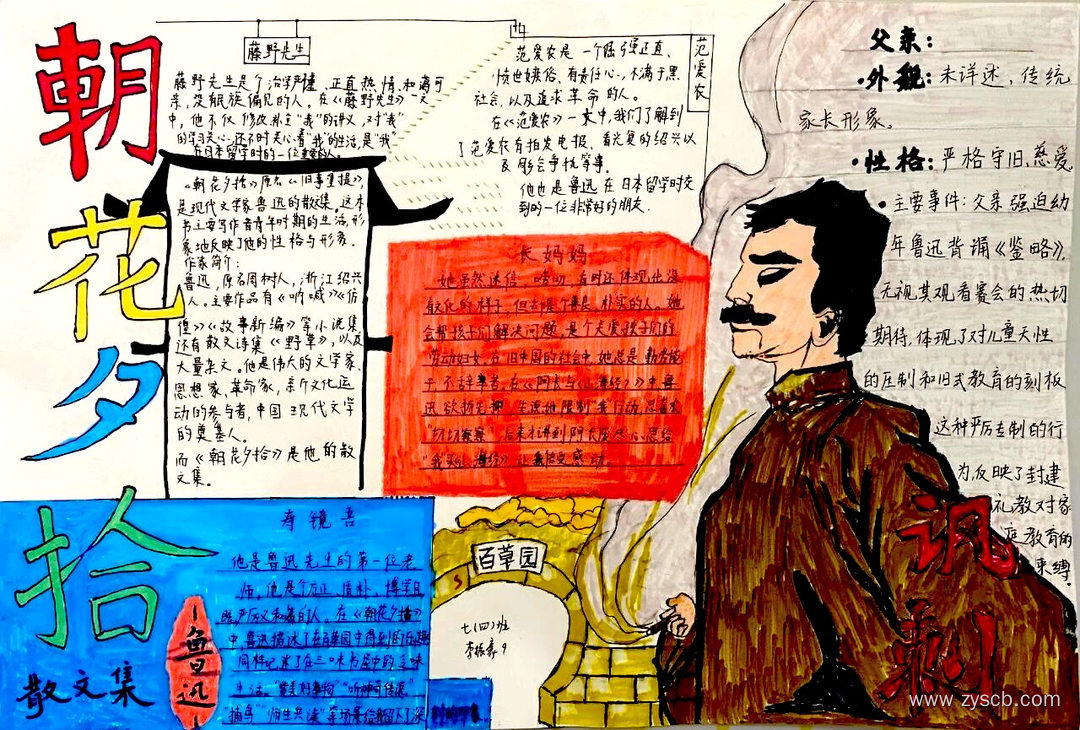 朝
花
夕
拾
散文集
鲁迅
藤野先生
藤野先生是个治学严谨、正直热情、和蔼可
亲，没有民族偏见的人。在《藤野先生》一文
中，他不仅修改补正“我”的讲义，对“我”
的学习关心，还不时关心着“我”的生活，是“我”
在日本留学时的一位重要的人。
《朝花夕拾》原名《旧事重提》，
是现代文学家鲁迅的散文集，这本
书主要写作者青年时期的生活，形
象地反映了他的性格与形象。
作家简介：
鲁迅，原名周树人，浙江绍兴
人。主要作品有《呐喊》《彷
徨》《故事新编》等小说集
还有散文诗集《野草》，以及
大量杂文。他是伟大的文学家、
思想家、革命家，新文化运
动的参与者，中国现代文学
的奠基人。
而《朝花夕拾》是他的散
文集。
范爱农
范爱农是一个倔强正直、
愤世嫉俗、有责任心、不满于黑
社会，以及追求革命的人。
在《范爱农》一文中，我们了解到
了范爱农有拍发电报、看光复的绍兴以
及同乡会争执等事。
他也是鲁迅在日本留学时交
到的一位非常好的朋友。
长妈妈
她虽然迷信、唠叨，有时还体现出没
有文化的样子，但也是个善良、朴实的人。她
会帮孩子们解决问题，是个关爱孩子们的
劳动妇女，在旧中国的社会中，她总是勤劳能
干，不辞辛苦，在《阿长与《山海经》》中
寿镜吾
他是鲁迅先生的第一位老
师，他是个方正、质朴、博学且
既严厉又和蔼的人。在《朝花夕拾》
中，鲁迅描述了在百草园中得到的乐趣
同样记录了在三味书屋中的
百草园
七(四)班
父亲：
·外貌：未详述，传统
家长形象。
·性格：严格守旧，慈爱
·主要事件：父亲强迫幼
年鲁迅背诵《鉴略》，
无视其观看赛会的热切
期待，体现了对儿童天性
的压制和旧式教育的刻板
这种严厉专制的行
为，反映了封建
礼教对家
庭教育的
束缚。
讽
刺
www.zyscb.com